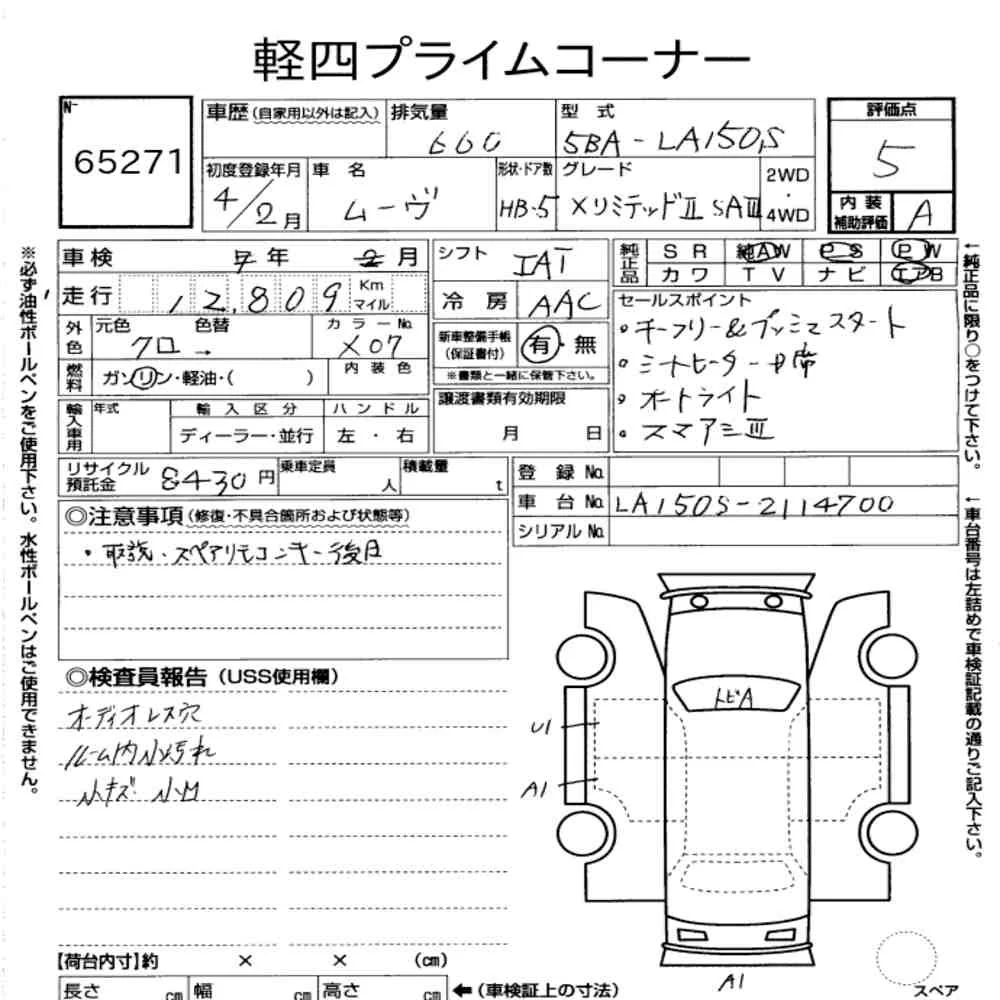 軽四プライムコーナー
N-
65271
車歴(自家用以外は記入)
排気量
660
型 式
5BA-LA150S
評価点
5
初度登録年月
4/2月
車 名
ムーヴ
形状・ドア数
HB-5
グレード
XリミテッドⅡ SAⅢ
2WD
・
4WD
内 装
補助評価
A
車検 7年 2月
走行 12,809 Km
マイル
シフト
IAT
冷 房 AAC
純正品
S R 純AW P S P W
カワ T V ナビ エアB
外色
元色 色替
クロ →
カラーNo.
X07
燃料
ガソリン・軽油・( )
内 装 色
新車整備手帳
(保証書付)
有・無
※書類と一緒に保管下さい。
セールスポイント
・キーフリー&プッシュスタート
・シートヒーター 中席
・オートライト
・スマアシⅢ
輸入車用
年式
輸 入 区 分
ディーラー・並行
ハ ン ド ル
左 ・ 右
譲渡書類有効期限
月 日
リサイクル
預託金 8430 円
乗車定員
人
積載量
t
登 録 No.
車 台 No. LA150S-2114700
シリアル No.
◎注意事項(修復・不具合箇所および状態等)
・取説・スペアリモコンキー後日
◎検査員報告(USS使用欄)
オーディオレス穴
ルーム内小汚れ
小キズ 小凹
トビA
U1
A1
A1
【荷台内寸】約 × × (cm)
長さ cm 幅 cm 高さ cm
←(車検証上の寸法)
スペア
※必ず油性ボールペンをご使用下さい。水性ボールペンはご使用できません。
←純正品に限り○をつけて下さい。
←車台番号は左詰めで車検証記載の通りご記入下さい。